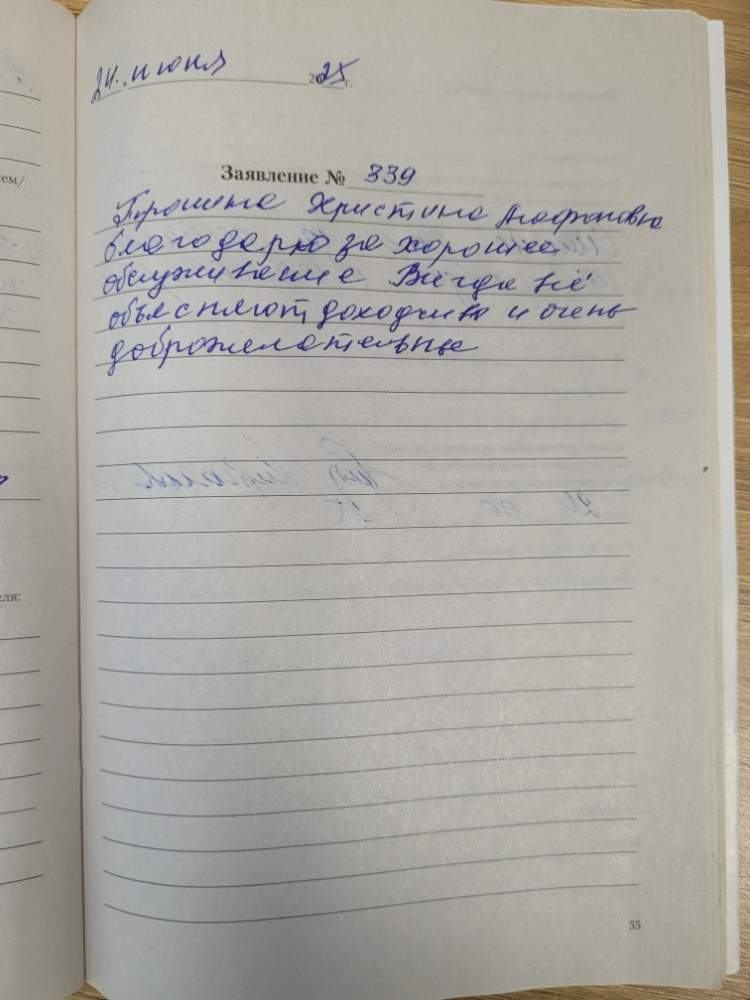 24. июня 2025 г.
Заявление № 339
Христина Агафоновна
благодарю за хорошее
обслуживание Всегда всё
объясняют доходчиво и очень
доброжелательные
ем/
еля:
55